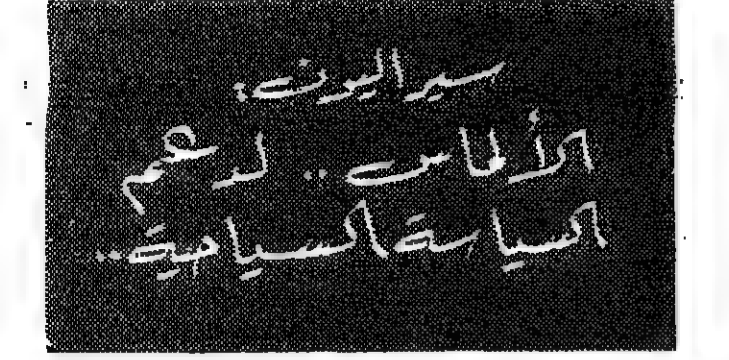 سيراليون:
الألماس .. لدعم
السياسة السياحية ..